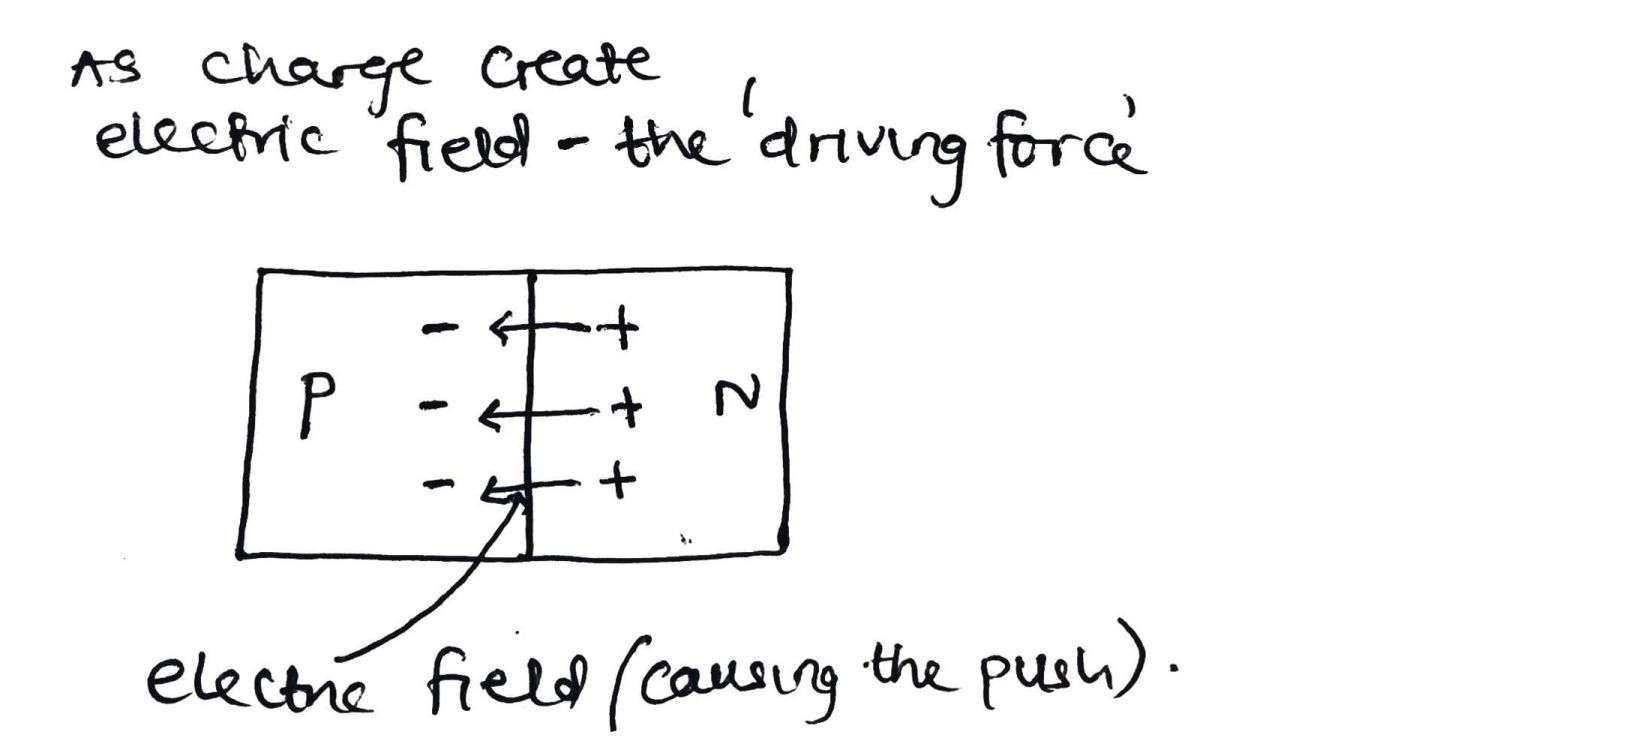 As charge create
electric field - the 'driving force'
- ← +
P - ← + N
- ← +
electric field (causing the push).